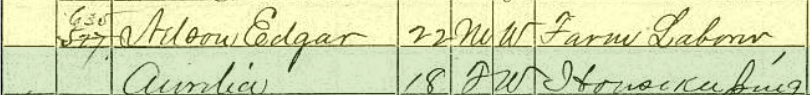 635
577 Adson Edgar 22 M W Farm Laborer
Aurelia 18 F W Housekeeping